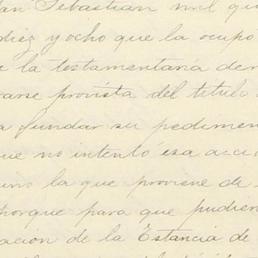 San Sebastian mil qui
diez y ocho que la ocupo
e la testamentaria de
rarse provista del titulo
a fundar su pedimen
ue no intentó esa acci
uno la que proviene de
porque para que pudien
ación de la Estancia de